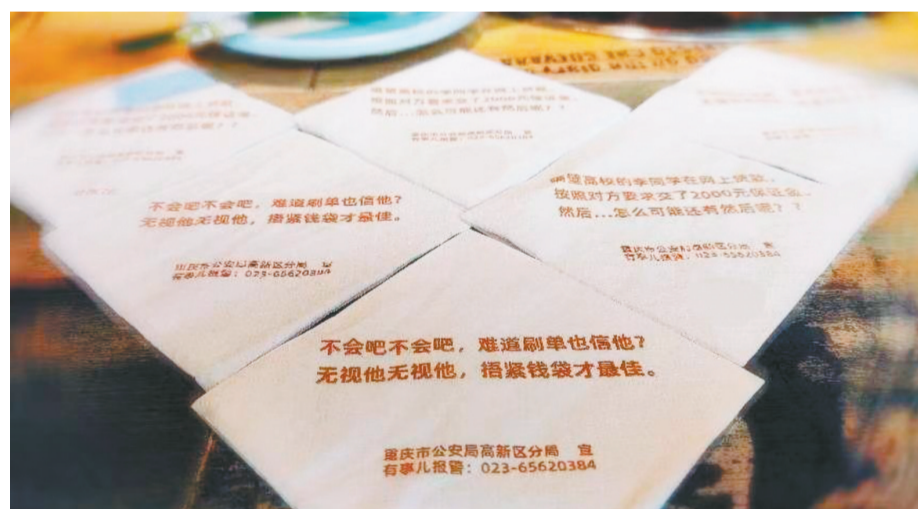 按照对方要求交了2000元保证金，
然后...怎么可能还有然后呢？？
不会吧不会吧，难道刷单也信他？
无视他无视他，捂紧钱袋才最佳。
重庆市公安局高新区分局 宣
有事儿报警：023-65620384
高校的李同学在网上贷款，
按照对方要求交了2000元保证金，
然后...怎么可能还有然后呢？？
重庆市公安局高新区分局 宣
有事儿报警：023-65620384
不会吧不会吧，难道刷单也信他？
无视他无视他，捂紧钱袋才最佳。
重庆市公安局高新区分局 宣
有事儿报警：023-65620384